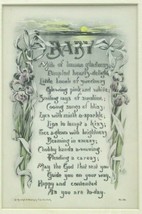 BABY
A mite of human gladness,
Dimpled hearty delight
Little hands of sweetness,
Glowing pink and white
Smiling rays of sunshine,
Cooing songs of bliss;
Eyes with such a sparkle,
Lips to tempt a kiss;
Face aglow with brightness
Beaming in ecstasy;
Chubby hands a-roaming,
Planting a caress;
May the God that sent you
Guide you on your way,
Happy and contented
As you are to-day.